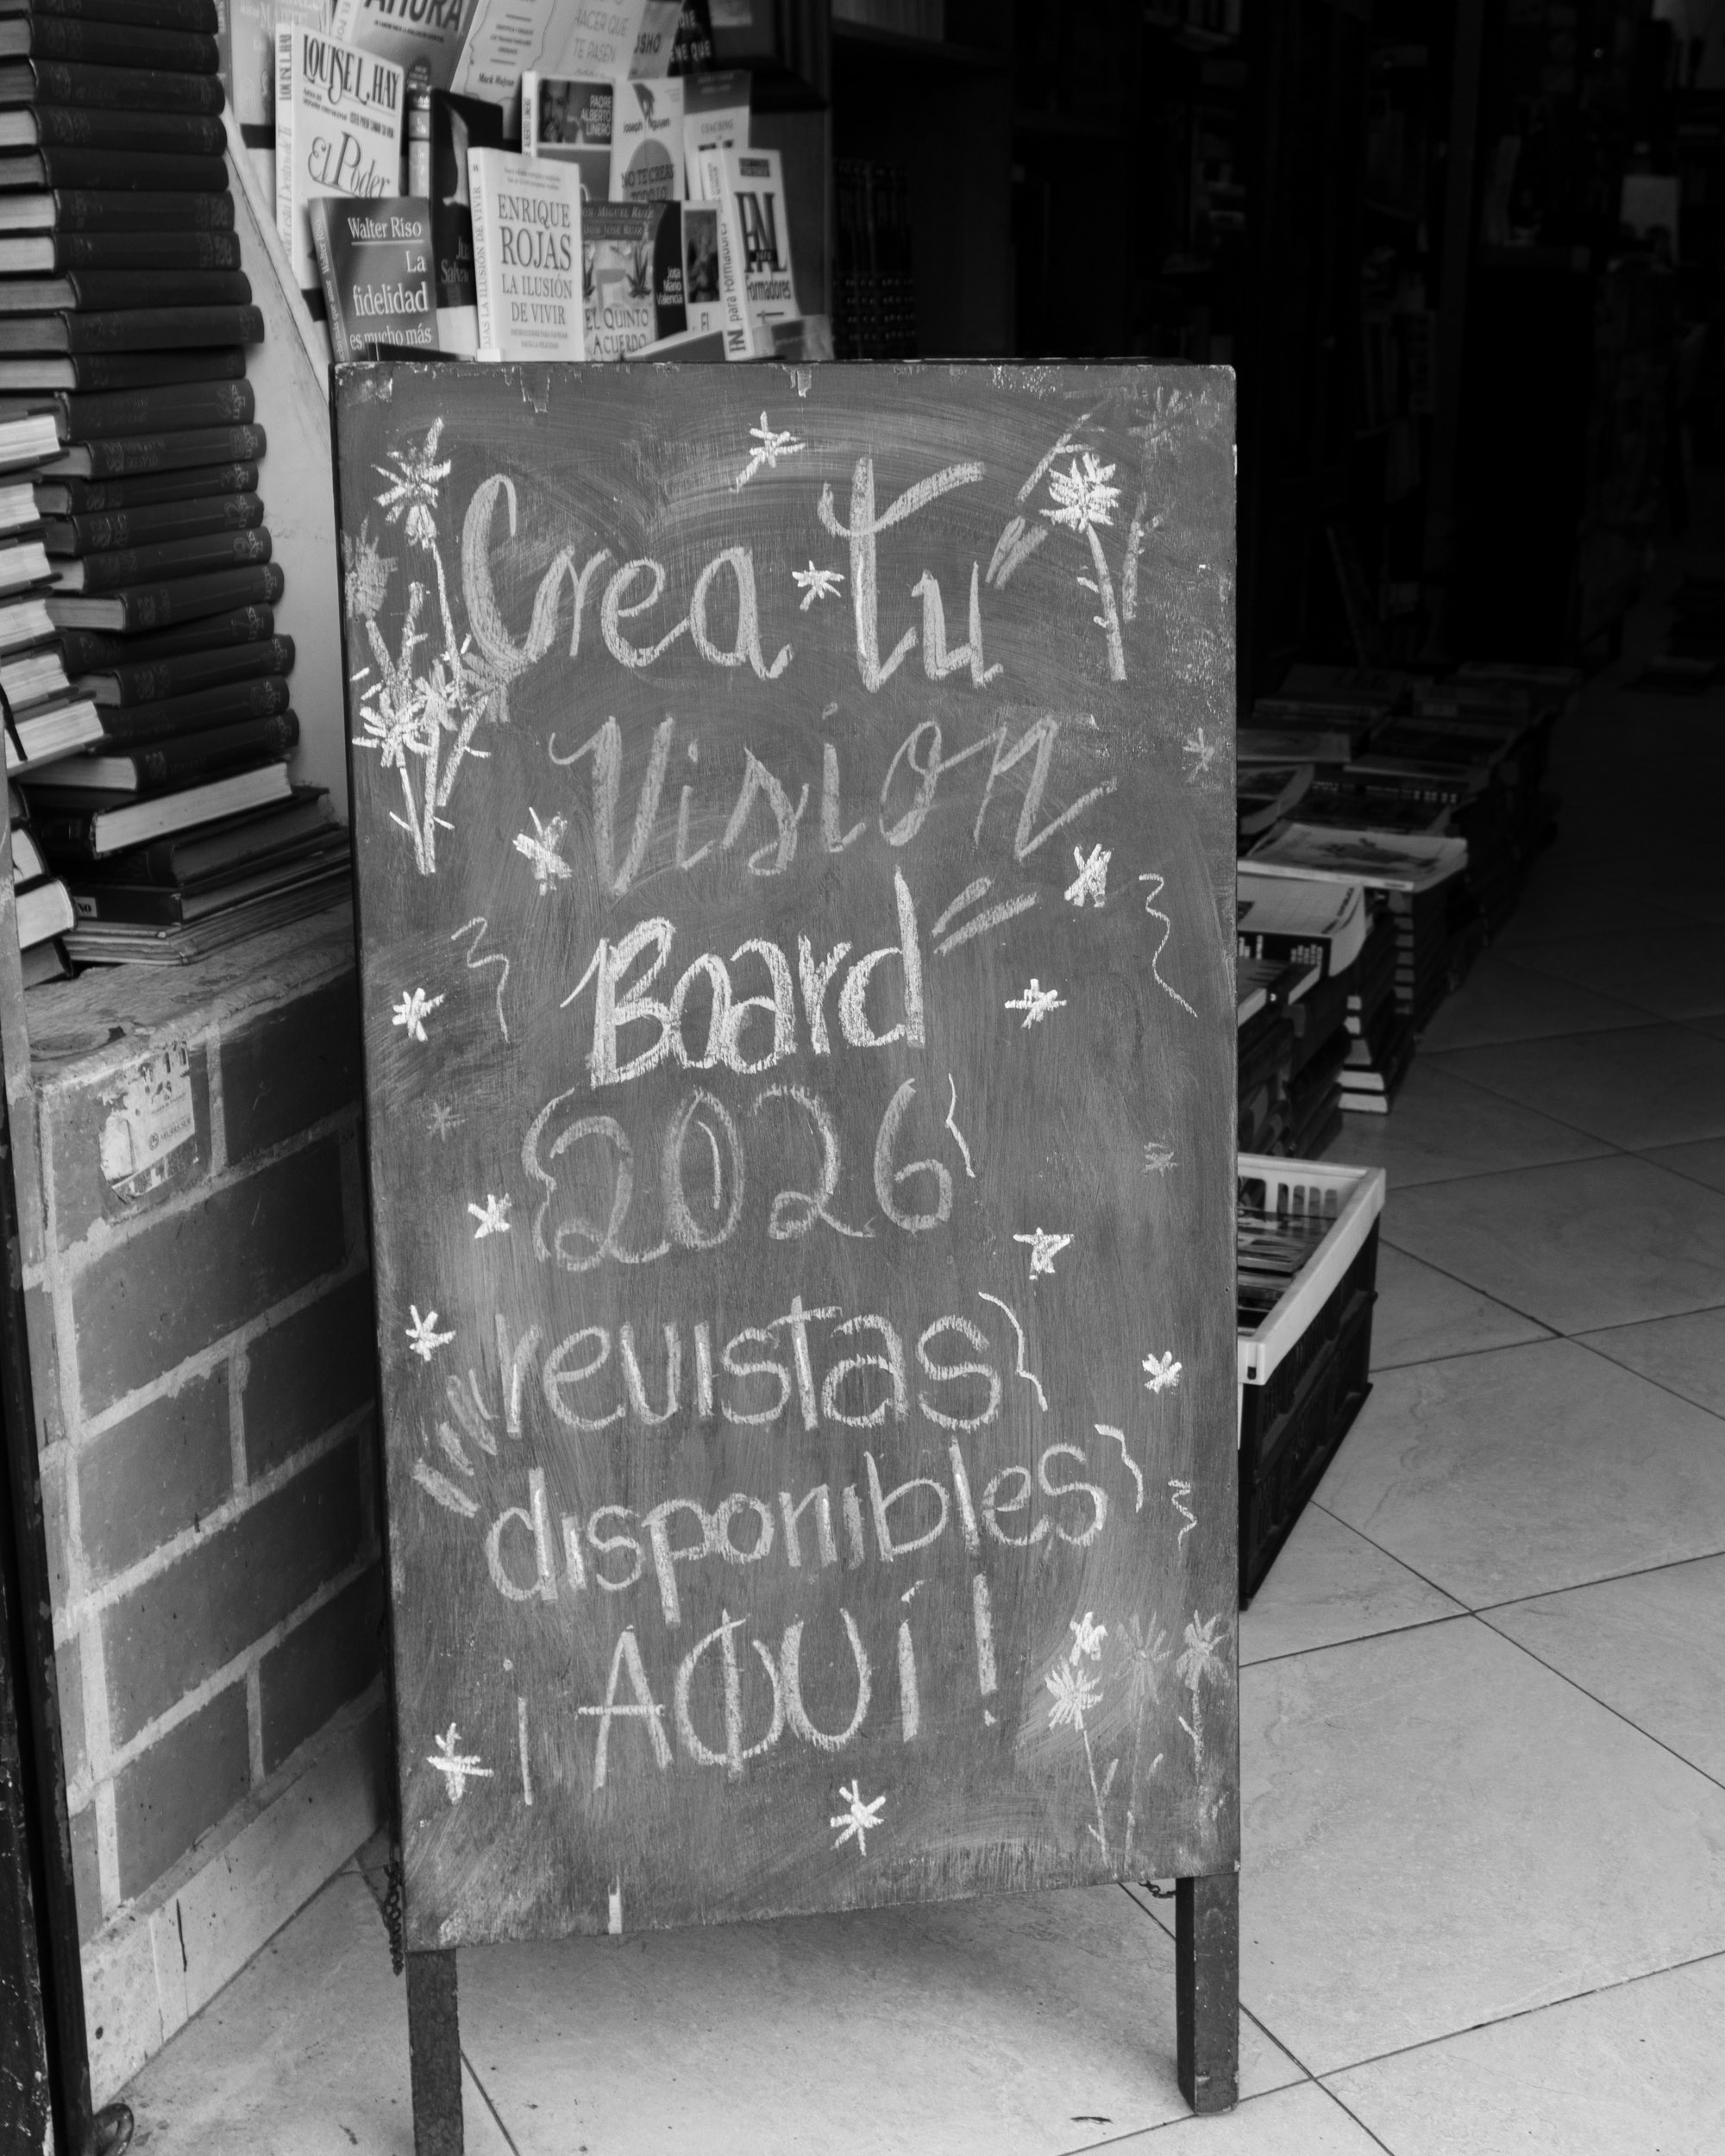 AHORA
HACER QUE
TE PASEN
OSHO
LOUISE L. HAY
El Poder
PADRE
ALBERTO
LINERO
COACHING
NO TE CREAS
Walter Riso
La
fidelidad
es mucho más
ENRIQUE
ROJAS
LA ILUSIÓN
DE VIVIR
EL QUINTO
ACUERDO
Formadores
Crea tu
Vision
Board
2026
revistas
disponibles
¡AQUÍ!